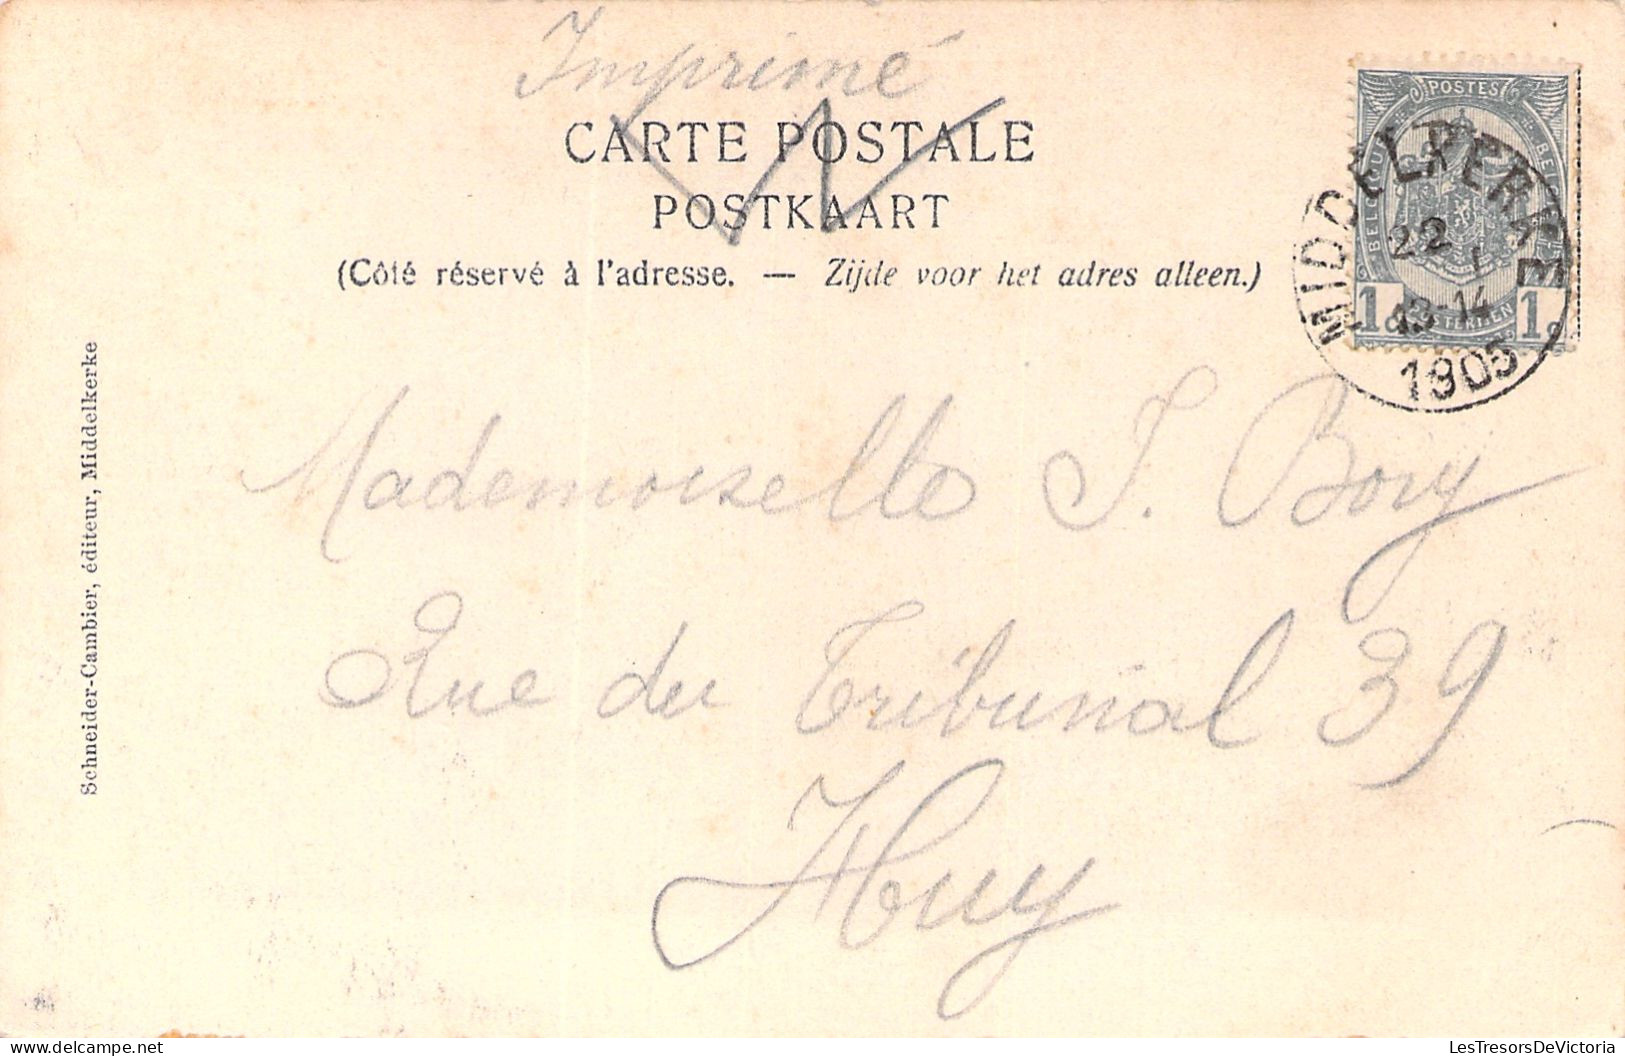 Imprimé
CARTE POSTALE
POSTKAART
(Côté réservé à l'adresse. — Zijde voor het adres alleen.)
POSTES
BELGIQUE
MIDDELKERKE
22 1
13-14
1905
1c 1c
Mademoiselle J. Bory
Rue du Tribunal 39
Huy
Schneider-Cambier, éditeur, Middelkerke
LesTresorsDeVictoria.com